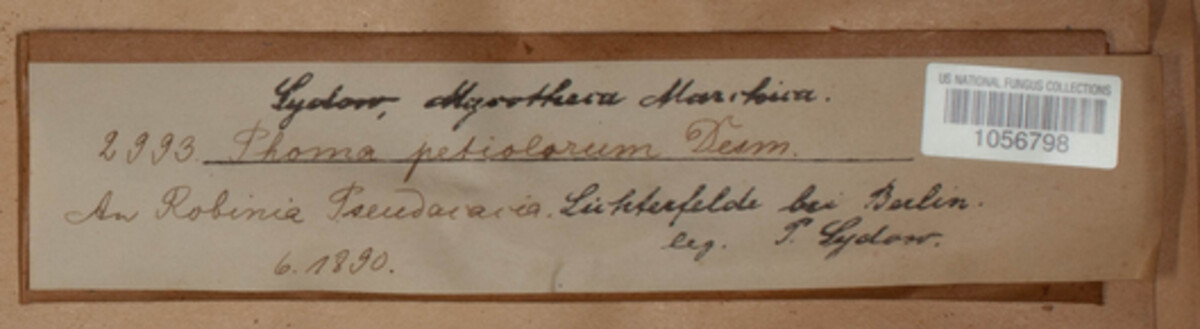 Sydow, Mycotheca Marchica.
US NATIONAL FUNGUS COLLECTIONS
1056798
2993. Phoma petiolorum Desm.
An Robinia Pseudacacia. Lichterfelde bei Berlin.
leg. P. Sydow.
6. 1890.